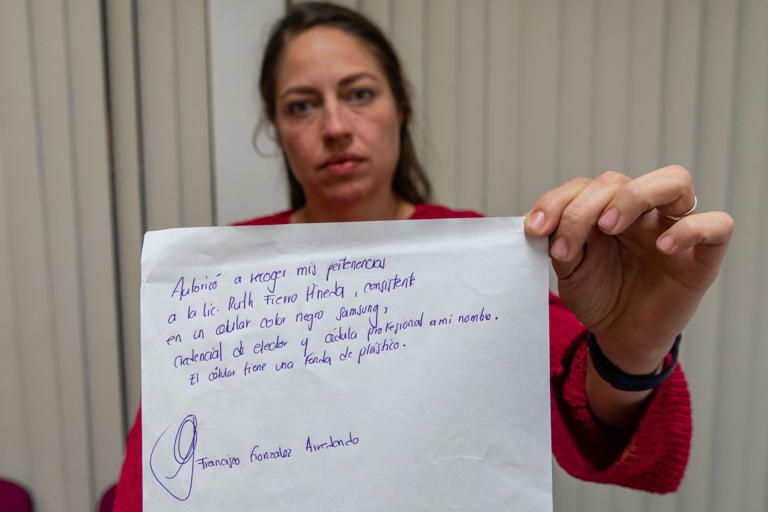 Autoricó a recoger mis pertenencias
a la lic. Ruth Fierro Pineda, consistent
en un celular color negro samsung,
credencial de elector y cédula profesional a mi nombre.
El célular tiene una funda de plástico.
Francisco González Arredondo